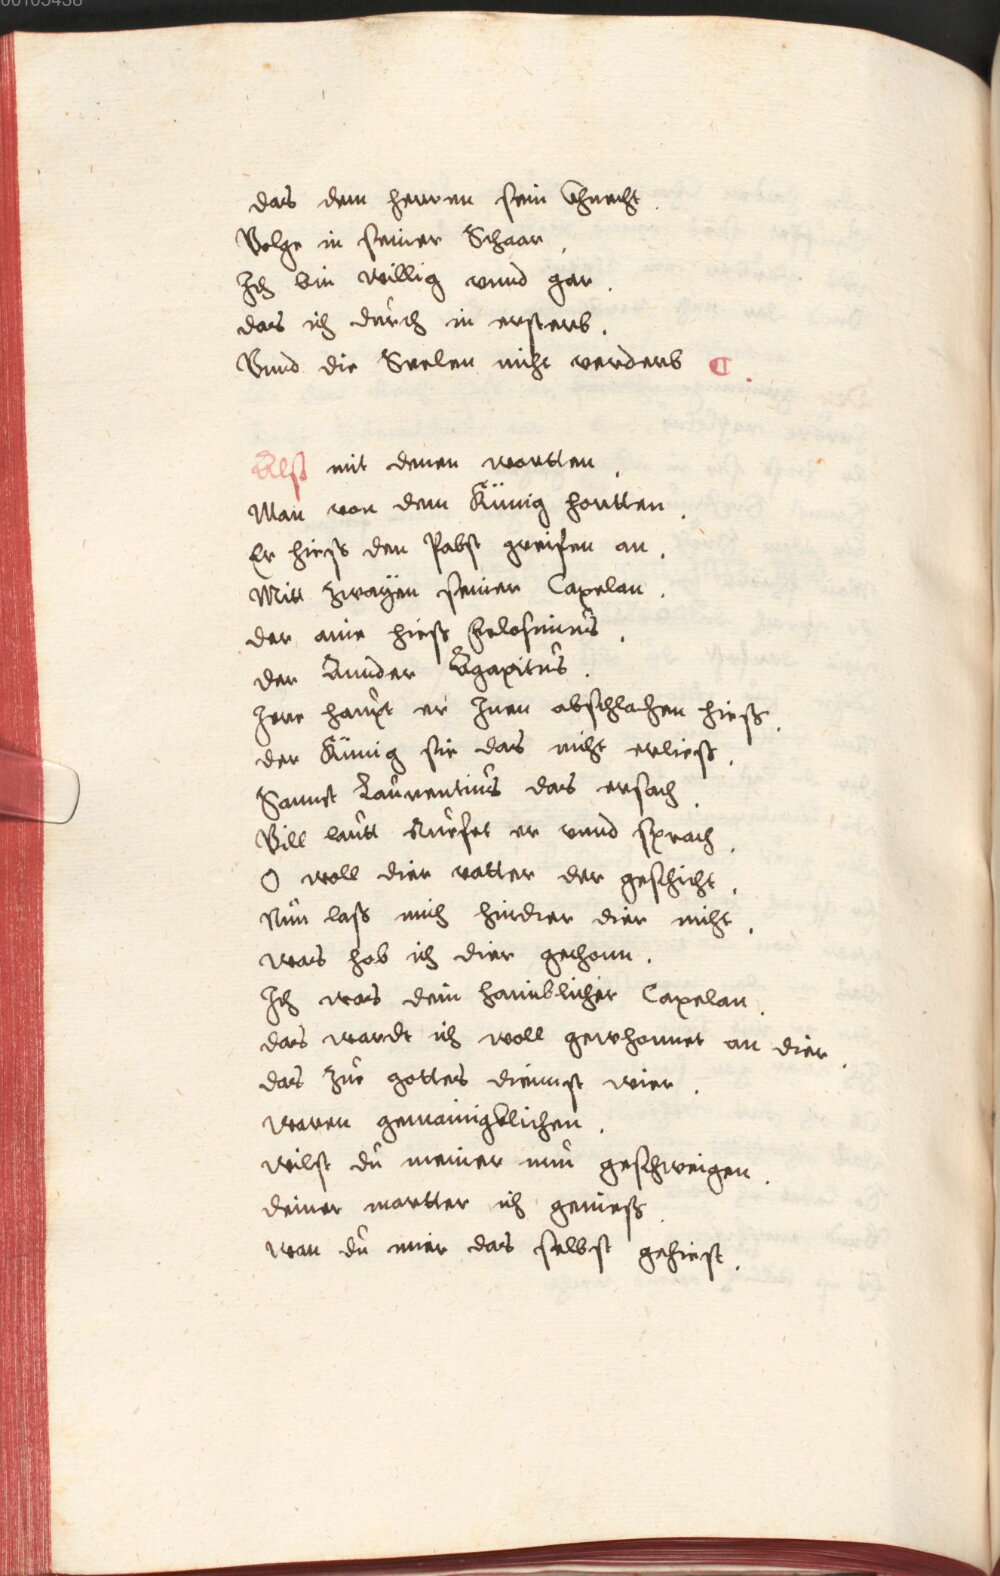 00103438
das dem herren sein Chnecht.
Volge in seiner Schaar,
Ich bin willig vnnd gar.
das ich durch in ersterb.
Vnnd die Seelen nicht verderb ¶.
Alß mit denen wortten,
Man von dem Künig hortten.
Er hieß den Pabst greifen an,
Mitt zwayen seiner Capelan.
der aine hieß Felosimus,
der Annder Agapitus.
Jere haupt er Inen abschlachen hieß.
der Künig sie das nicht erließ.
Sannct Laurentius das ersach,
Vill lautt Ruefet er vnnd sprach,
O woll dier vatter der geschicht,
Nun laß mich hindter dier nicht,
was hob ich dier gethonn.
Ich was dein haimblicher Capelan,
das wardt ich woll gewhonnet an dier,
das zue gottes diennst wier,
waren gemainigklichen.
wilst du meiner nun geschweigen,
deiner martter ich genieß,
wan du mier das selbst gehiest.